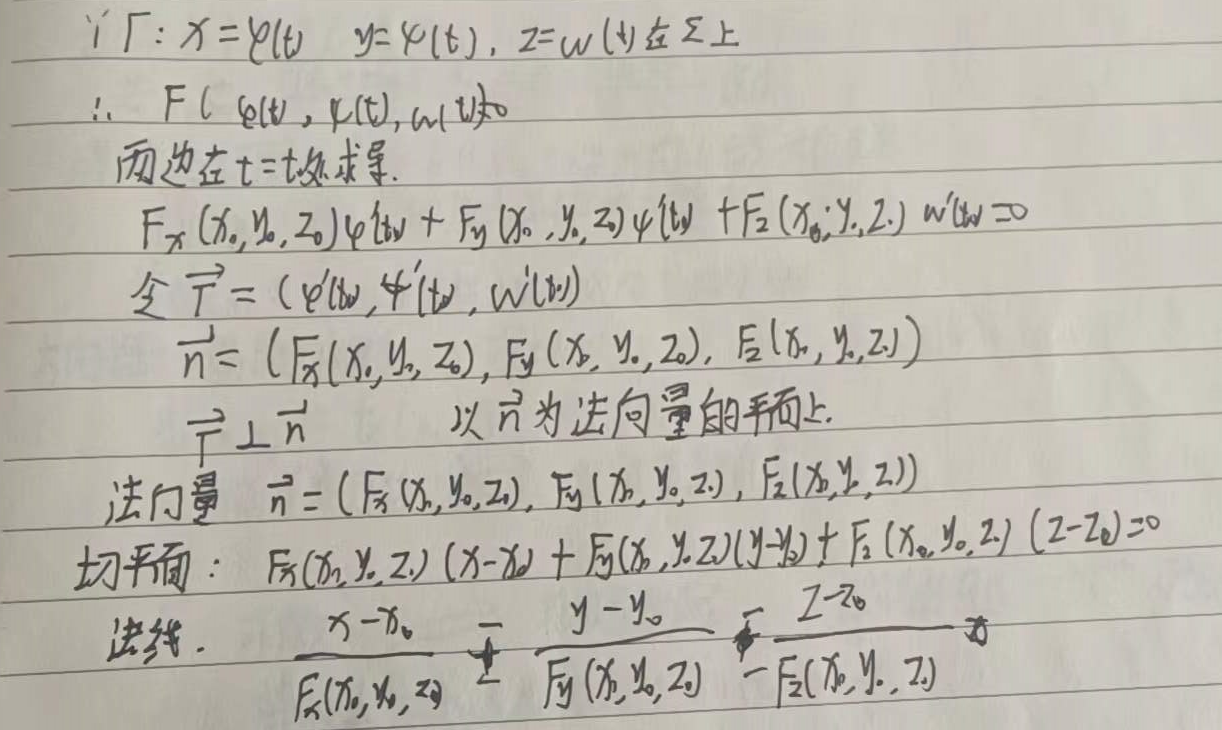 ∵ Γ: x=φ(t) y=ψ(t), z=ω(t)在Σ上
∴ F(φ(t), ψ(t), ω(t))=0
两边在t=t₀处求导.
Fx(x₀,y₀,z₀)φ'(t₀) + Fy(x₀,y₀,z₀)ψ'(t₀) + Fz(x₀,y₀,z₀) ω'(t₀)=0
令 T⃗ = (φ'(t₀), ψ'(t₀), ω'(t₀))
n⃗ = (Fx(x₀,y₀,z₀), Fy(x₀,y₀,z₀), Fz(x₀,y₀,z₀))
T⃗⊥n⃗ 以n⃗为法向量的平面上.
法向量 n⃗ = (Fx(x₀,y₀,z₀), Fy(x₀,y₀,z₀), Fz(x₀,y₀,z₀))
切平面: Fx(x₀,y₀,z₀)(x-x₀) + Fy(x₀,y₀,z₀)(y-y₀) + Fz(x₀,y₀,z₀)(z-z₀)=0
法线. (x-x₀)/Fx(x₀,y₀,z₀) = (y-y₀)/Fy(x₀,y₀,z₀) = (z-z₀)/Fz(x₀,y₀,z₀)